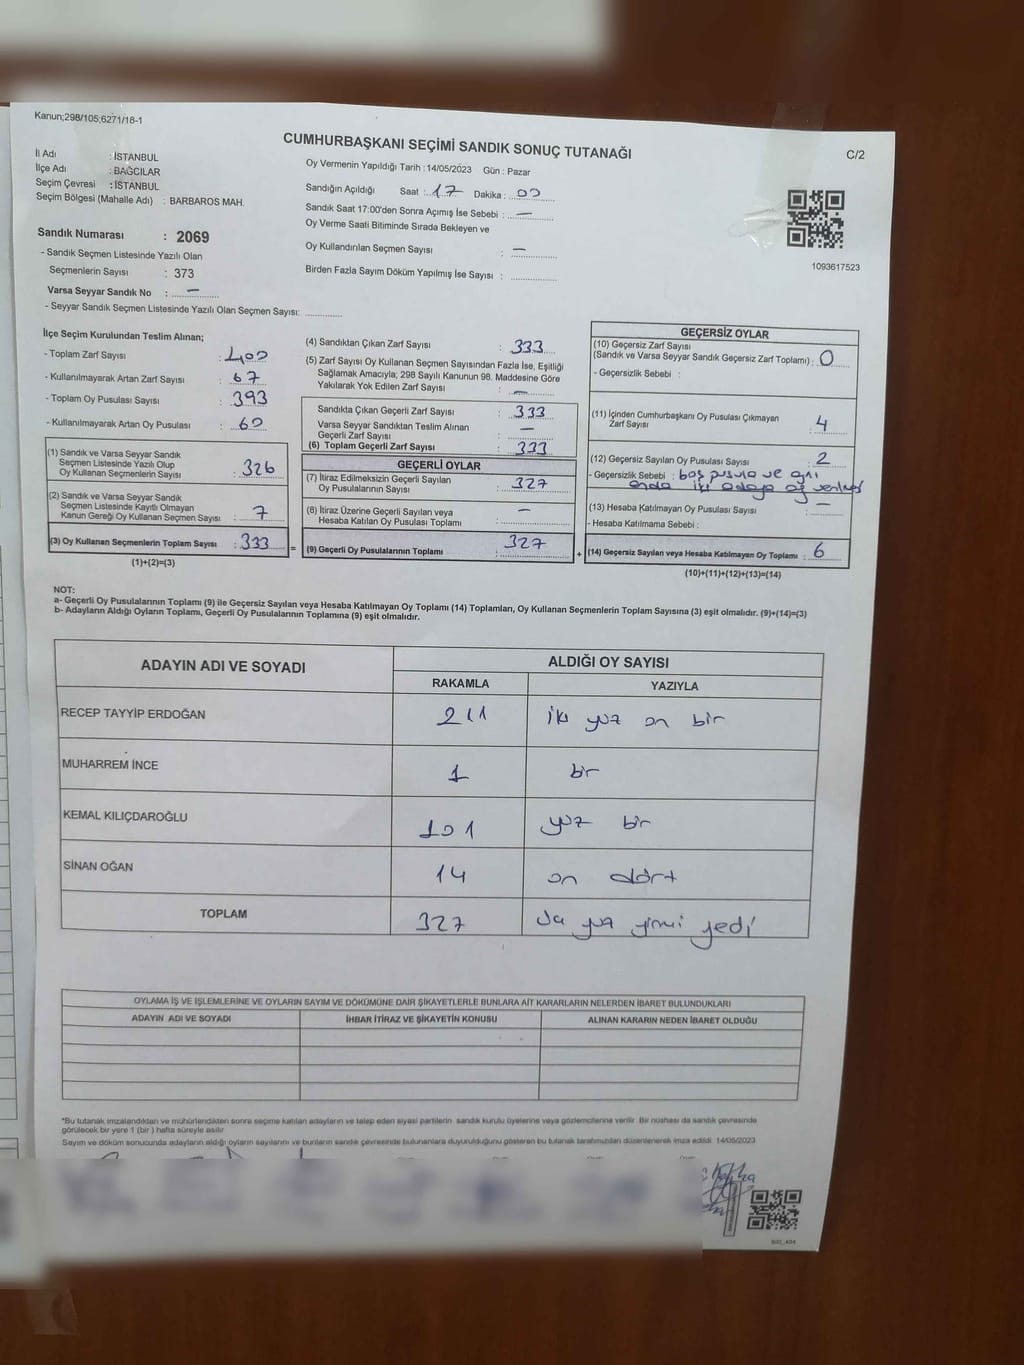 Kanun;298/105;6271/18-1
CUMHURBAŞKANI SEÇİMİ SANDIK SONUÇ TUTANAĞI
C/2
İl Adı : İSTANBUL
İlçe Adı : BAĞCILAR
Seçim Çevresi : İSTANBUL
Seçim Bölgesi (Mahalle Adı) : BARBAROS MAH.
Sandık Numarası : 2069
- Sandık Seçmen Listesinde Yazılı Olan
Seçmenlerin Sayısı : 373
Varsa Seyyar Sandık No : –
- Seyyar Sandık Seçmen Listesinde Yazılı Olan Seçmen Sayısı:
Oy Vermenin Yapıldığı Tarih : 14/05/2023 Gün : Pazar
Sandığın Açıldığı Saat : 17 Dakika : 00
Sandık Saat 17:00'den Sonra Açımış İse Sebebi : –
Oy Verme Saati Bitiminde Sırada Bekleyen ve
Oy Kullandırılan Seçmen Sayısı : –
Birden Fazla Sayım Döküm Yapılmış İse Sayısı :
1093617523
İlçe Seçim Kurulundan Teslim Alınan;
- Toplam Zarf Sayısı : 400
- Kullanılmayarak Artan Zarf Sayısı : 67
- Toplam Oy Pusulası Sayısı : 393
- Kullanılmayarak Artan Oy Pusulası : 60
(1) Sandık ve Varsa Seyyar Sandık
Seçmen Listesinde Yazılı Olup
Oy Kullanan Seçmenlerin Sayısı : 326
(2) Sandık ve Varsa Seyyar Sandık
Seçmen Listesinde Kayıtlı Olmayan
Kanun Gereği Oy Kullanan Seçmen Sayısı : 7
(3) Oy Kullanan Seçmenlerin Toplam Sayısı : 333
(1)+(2)=(3)
=
(4) Sandıktan Çıkan Zarf Sayısı : 333
(5) Zarf Sayısı Oy Kullanan Seçmen Sayısından Fazla İse, Eşitliği
Sağlamak Amacıyla; 298 Sayılı Kanunun 98. Maddesine Göre
Yakılarak Yok Edilen Zarf Sayısı : –
Sandıkta Çıkan Geçerli Zarf Sayısı : 333
Varsa Seyyar Sandıktan Teslim Alınan
Geçerli Zarf Sayısı : –
(6) Toplam Geçerli Zarf Sayısı : 333
GEÇERLİ OYLAR
(7) İtiraz Edilmeksizin Geçerli Sayılan
Oy Pusulalarının Sayısı : 327
(8) İtiraz Üzerine Geçerli Sayılan veya
Hesaba Katılan Oy Pusulası Toplamı : –
(9) Geçerli Oy Pusulalarının Toplamı : 327
+
GEÇERSİZ OYLAR
(10) Geçersiz Zarf Sayısı
(Sandık ve Varsa Seyyar Sandık Geçersiz Zarf Toplamı) : 0
- Geçersizlik Sebebi :
(11) İçinden Cumhurbaşkanı Oy Pusulası Çıkmayan
Zarf Sayısı : 4
(12) Geçersiz Sayılan Oy Pusulası Sayısı : 2
- Geçersizlik Sebebi : boş pusula ve aynı
anda iki adaya oy verilmiş
(13) Hesaba Katılmayan Oy Pusulası Sayısı : –
- Hesaba Katılmama Sebebi :
(14) Geçersiz Sayılan veya Hesaba Katılmayan Oy Toplamı : 6
(10)+(11)+(12)+(13)=(14)
NOT:
a- Geçerli Oy Pusulalarının Toplamı (9) ile Geçersiz Sayılan veya Hesaba Katılmayan Oy Toplamı (14) Toplamları, Oy Kullanan Seçmenlerin Toplam Sayısına (3) eşit olmalıdır. (9)+(14)=(3)
b- Adayların Aldığı Oyların Toplamı, Geçerli Oy Pusulalarının Toplamına (9) eşit olmalıdır.
ADAYIN ADI VE SOYADI ALDIĞI OY SAYISI
RAKAMLA YAZIYLA
RECEP TAYYİP ERDOĞAN 211 iki yüz on bir
MUHARREM İNCE 1 bir
KEMAL KILIÇDAROĞLU 101 yüz bir
SİNAN OĞAN 14 on dört
TOPLAM 327 üç yüz yirmi yedi
OYLAMA İŞ VE İŞLEMLERİNE VE OYLARIN SAYIM VE DÖKÜMÜNE DAİR ŞİKAYETLERLE BUNLARA AİT KARARLARIN NELERDEN İBARET BULUNDUKLARI
ADAYIN ADI VE SOYADI İHBAR İTİRAZ VE ŞİKAYETİN KONUSU ALINAN KARARIN NEDEN İBARET OLDUĞU
*Bu tutanak imzalandıktan ve mühürlendikten sonra seçime katılan adayların ve talep eden siyasi partilerin sandık kurulu üyelerine veya gözlemcilerine verilir. Bir nüshası da sandık çevresinde
görülecek bir yere 1 (bir) hafta süreyle asılır
Sayım ve döküm sonucunda adayların aldığı oyların sayılarını ve bunların sandık çevresinde bulunanlara duyurulduğunu gösteren bu tutanak tarafımızdan düzenlenerek imza edildi. 14/05/2023